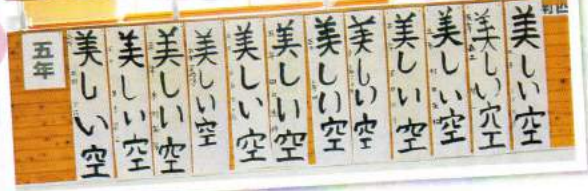 美しい空
美しい空
美しい空
美しい空
美しい空
美しい空
美しい空
美しい空
美しい空
美しい空
美しい空
美しい空
五年